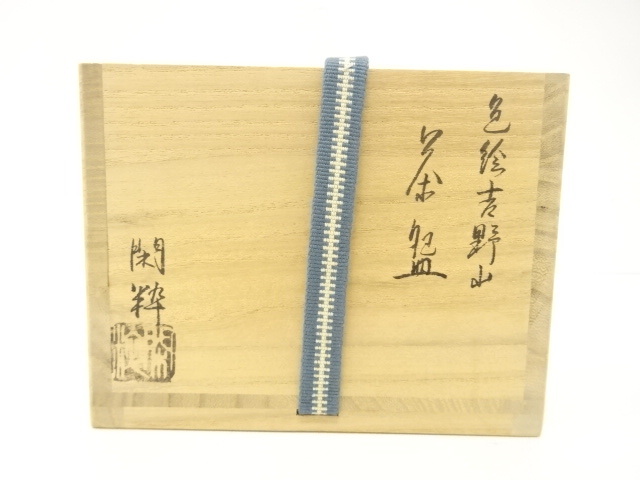 色絵吉野山
茶盌
閑粋